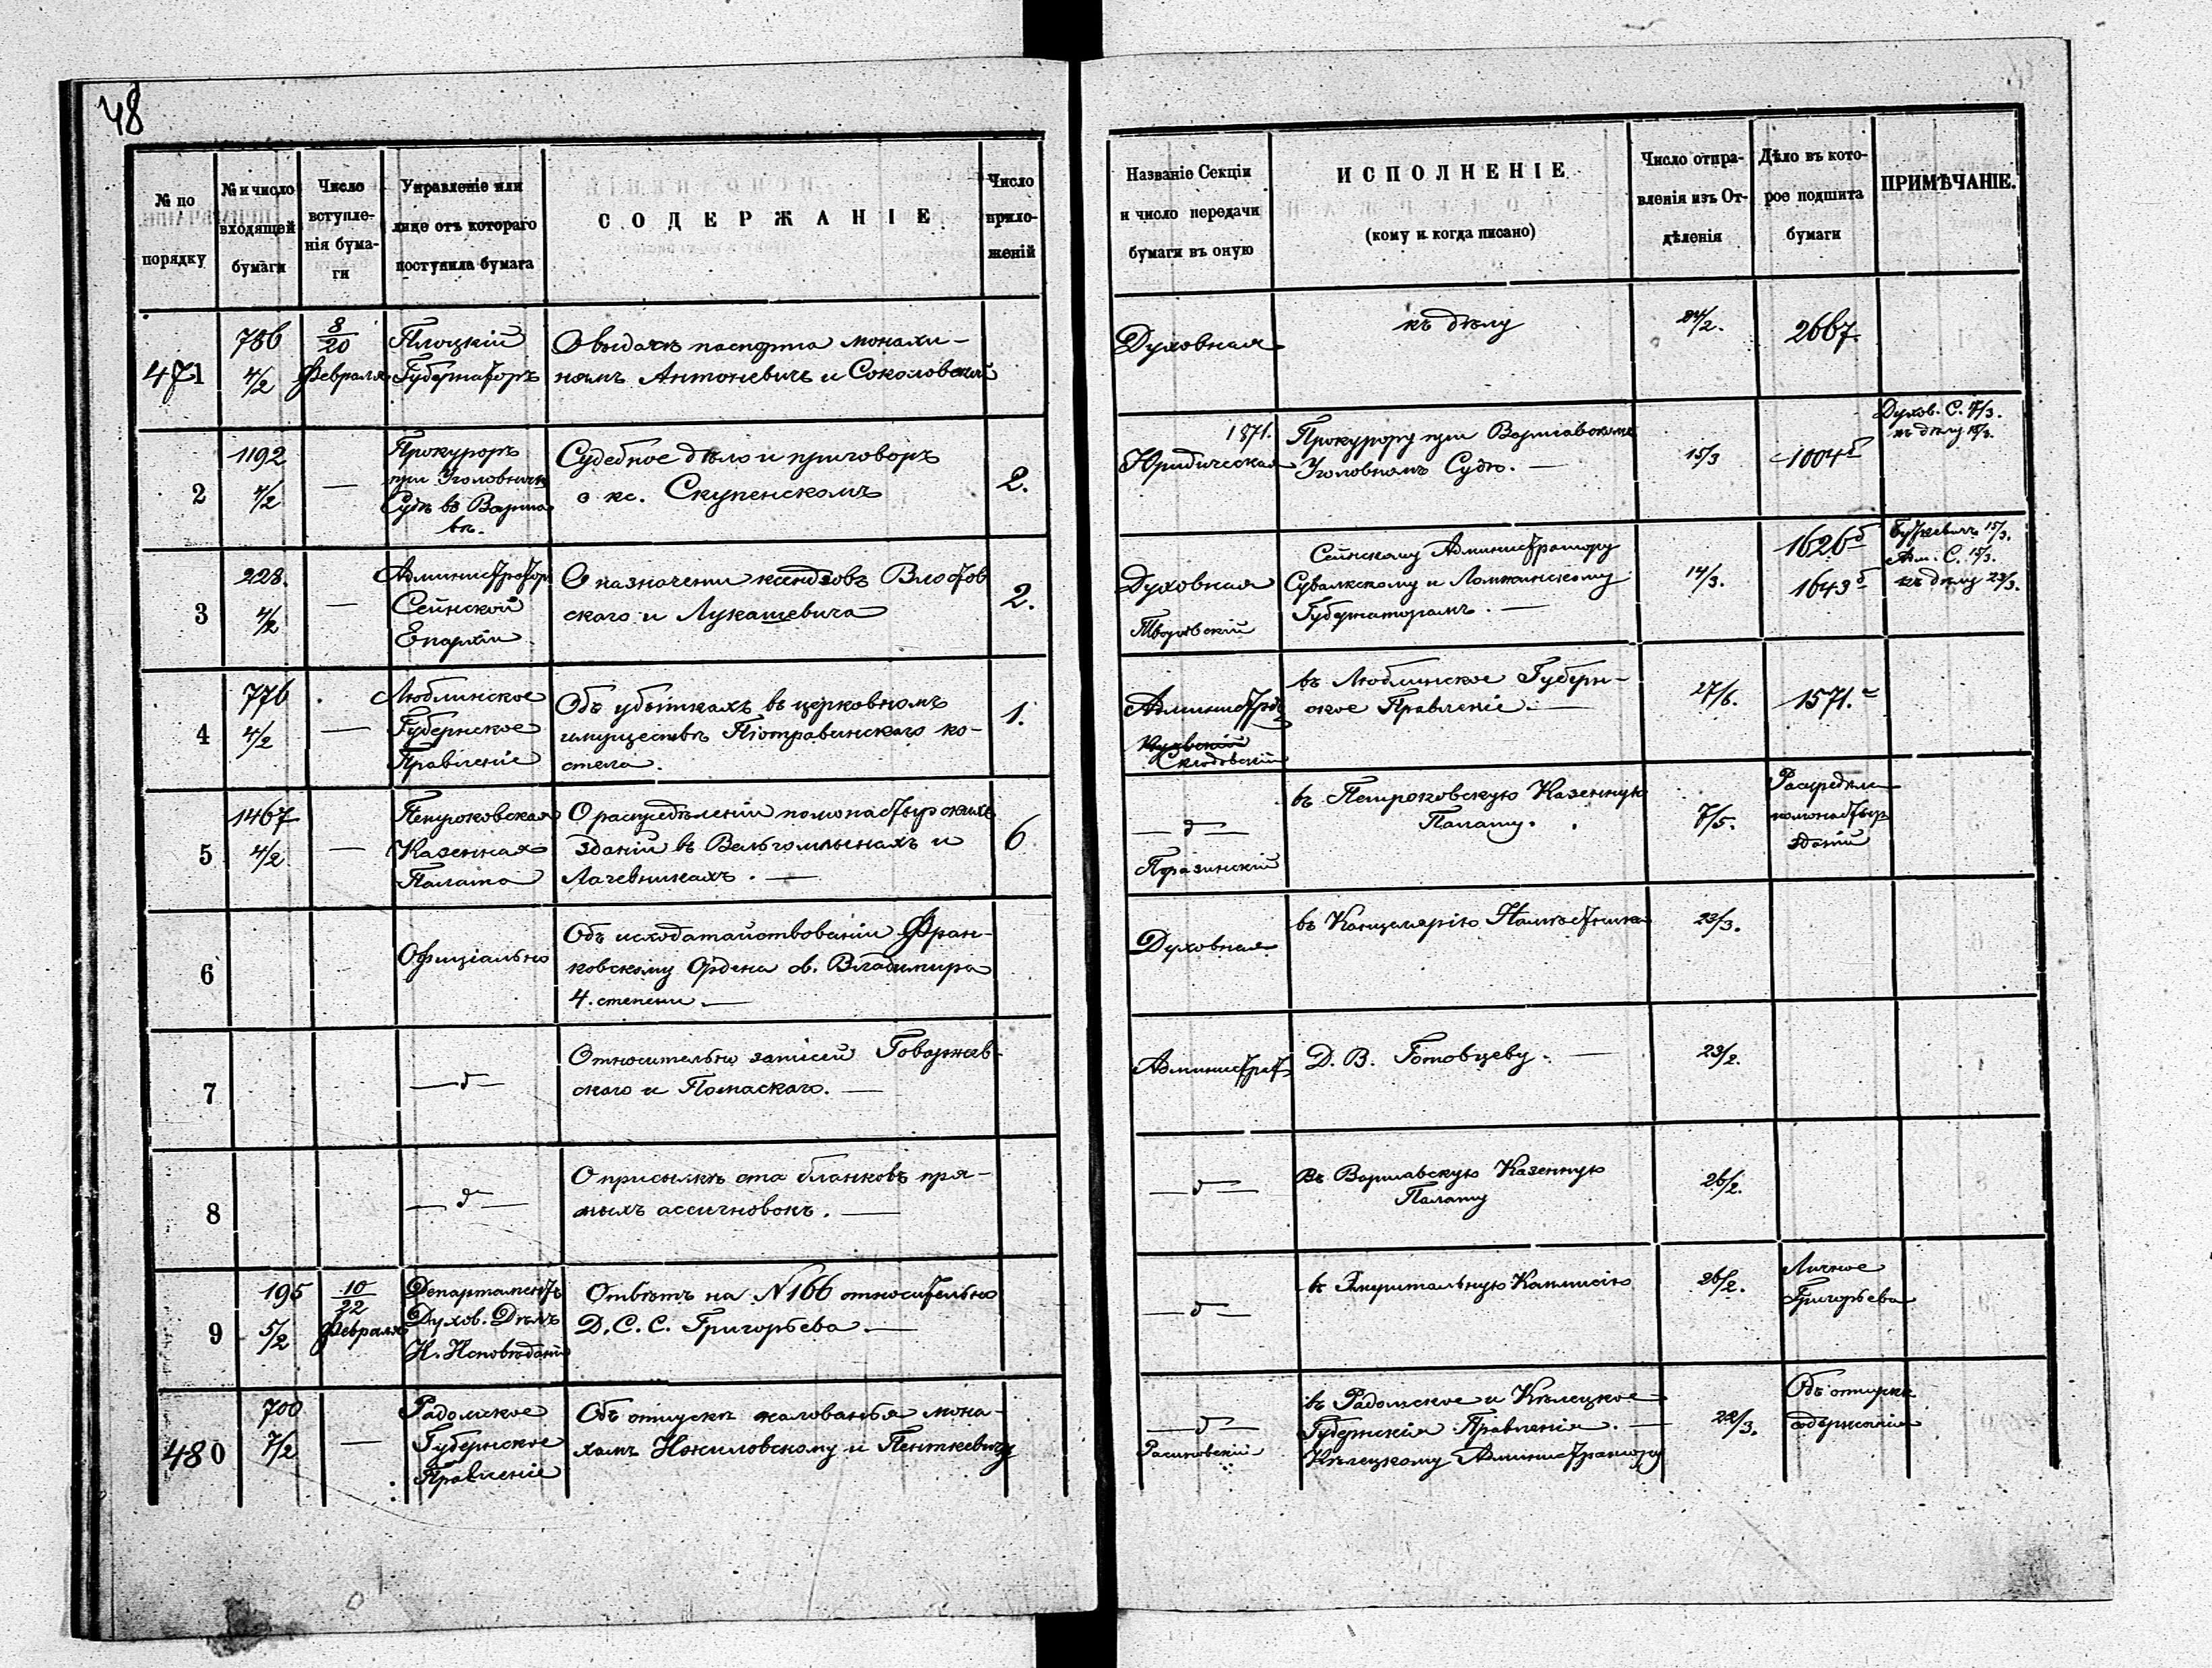 48
№ по порядку
№ и число входящей бумаги
Число вступле-нія бума-ги
Управленіе или лице отъ котораго поступила бумага
СОДЕРЖАНІЕ
Число прило-женій
Названіе Секціи и число передачи бумаги въ оную
ИСПОЛНЕНІЕ
(кому и когда писано)
Число отпра-вленія изъ От-дѣленія
Дѣло въ кото-рое подшита бумаги
ПРИМѢЧАНІЕ.
471
786
4/2
8/20
Февраля
Плоцкій
Губернаторъ
О выдачѣ паспорта монахи-
нямъ Антоневичъ и Соколовской
Духовная
къ дѣлу
24/2.
2667.
2
1192
4/2
—
Прокуроръ
при Уголовномъ
Судѣ въ Варша
вѣ.
Судебное дѣло и приговоръ
о кс. Скупенскомъ
2.
1871.
Юридическая
Прокурору при Варшавскомъ
Уголовномъ Судѣ. —
15/3
1004б
Духов. С.
къ дѣлу
3
228.
4/2
—
Администраторъ
Сейнской
Епархіи.
О назначеніи ксендзовъ Вмостов
скаго и Лукашевича
2.
Духовная
Сейнскому Администратору
Сувалкскому и Ломжинскому
Губернаторамъ. —
14/3.
1626б
1643б
15/3.
Ад. С. 15/3.
къ дѣлу 23/3.
4
776
4/2
—
Люблинское
Губернское
Правленіе
Объ убыткахъ въ церковномъ
имуществѣ Піотравинскаго ко-
стела.
1.
Администр
Склодовскій
въ Люблинское Губерн-
ское Правленіе. —
27/6.
1571.
5
1467
4/2
—
Петроковская
Казенная
Палата
О распредѣленіи помонастырскихъ
зданій въ Вельгомлынахъ и
Лачевникахъ. —
6
— д —
Поразинскій
въ Петроковскую Казенную
Палату.
7/5.
Распредѣл
помонастыр
зданій
6
Офиціально
Объ исходатайствованіи Фран-
ковскому Ордена св. Владимира
4. степени. —
Духовная
въ Канцелярію Намѣстника
23/3.
7
— д —
Относительно записей Говоржев-
скаго и Помаскаго. —
Администрат
Д. В. Готовцеву. —
23/2.
8
— д —
О присылкѣ ста бланковъ пря-
мыхъ ассигновокъ. —
— д —
Въ Варшавскую Казенную
Палату
26/2.
9
195
5/2
10/22
Февраля
Департаментъ
Духов. Дѣлъ
И. Исповѣданій
Отвѣтъ на №166 относительно
Д. С. С. Григорьева. —
— д —
въ Эмеритальную Коммисію
26/2.
Личное
Григорьева
480
700
7/2
—
Радомское
Губернское
Правленіе
Объ отпускѣ жалованья мона-
хамъ Ножиловскому и Пенткевичу
— д —
въ Радомское и Кѣлецкое
Губернскія Правленія. —
Кѣлецкому Администратору
22/3.
Объ отпускѣ
содержанія